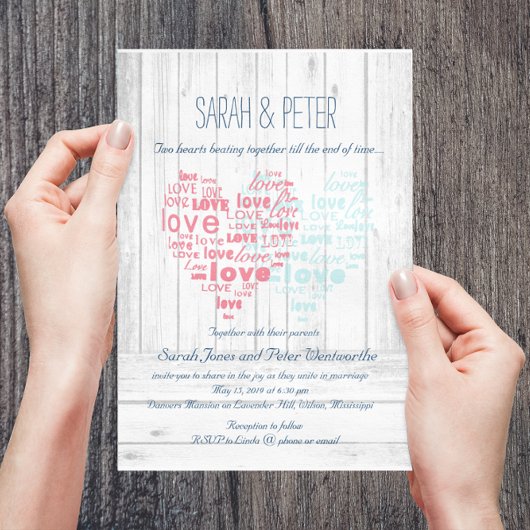 SARAH & PETER
Two hearts beating together till the end of time....
love love love
LOVE LOVE love
LOVE LOVE love love
love love Love love
love LOVE LOVE
love love love
Love love love
love LOVE
love love
love
love
Together with their parents
Sarah Jones and Peter Wentworthe
invite you to share in the joy as they unite in marriage
May 15, 2019 at 6:30 pm
Danvers Mansion on Lavender Hill, Wilson, Mississippi
Reception to follow
RSVP to Linda @ phone or email